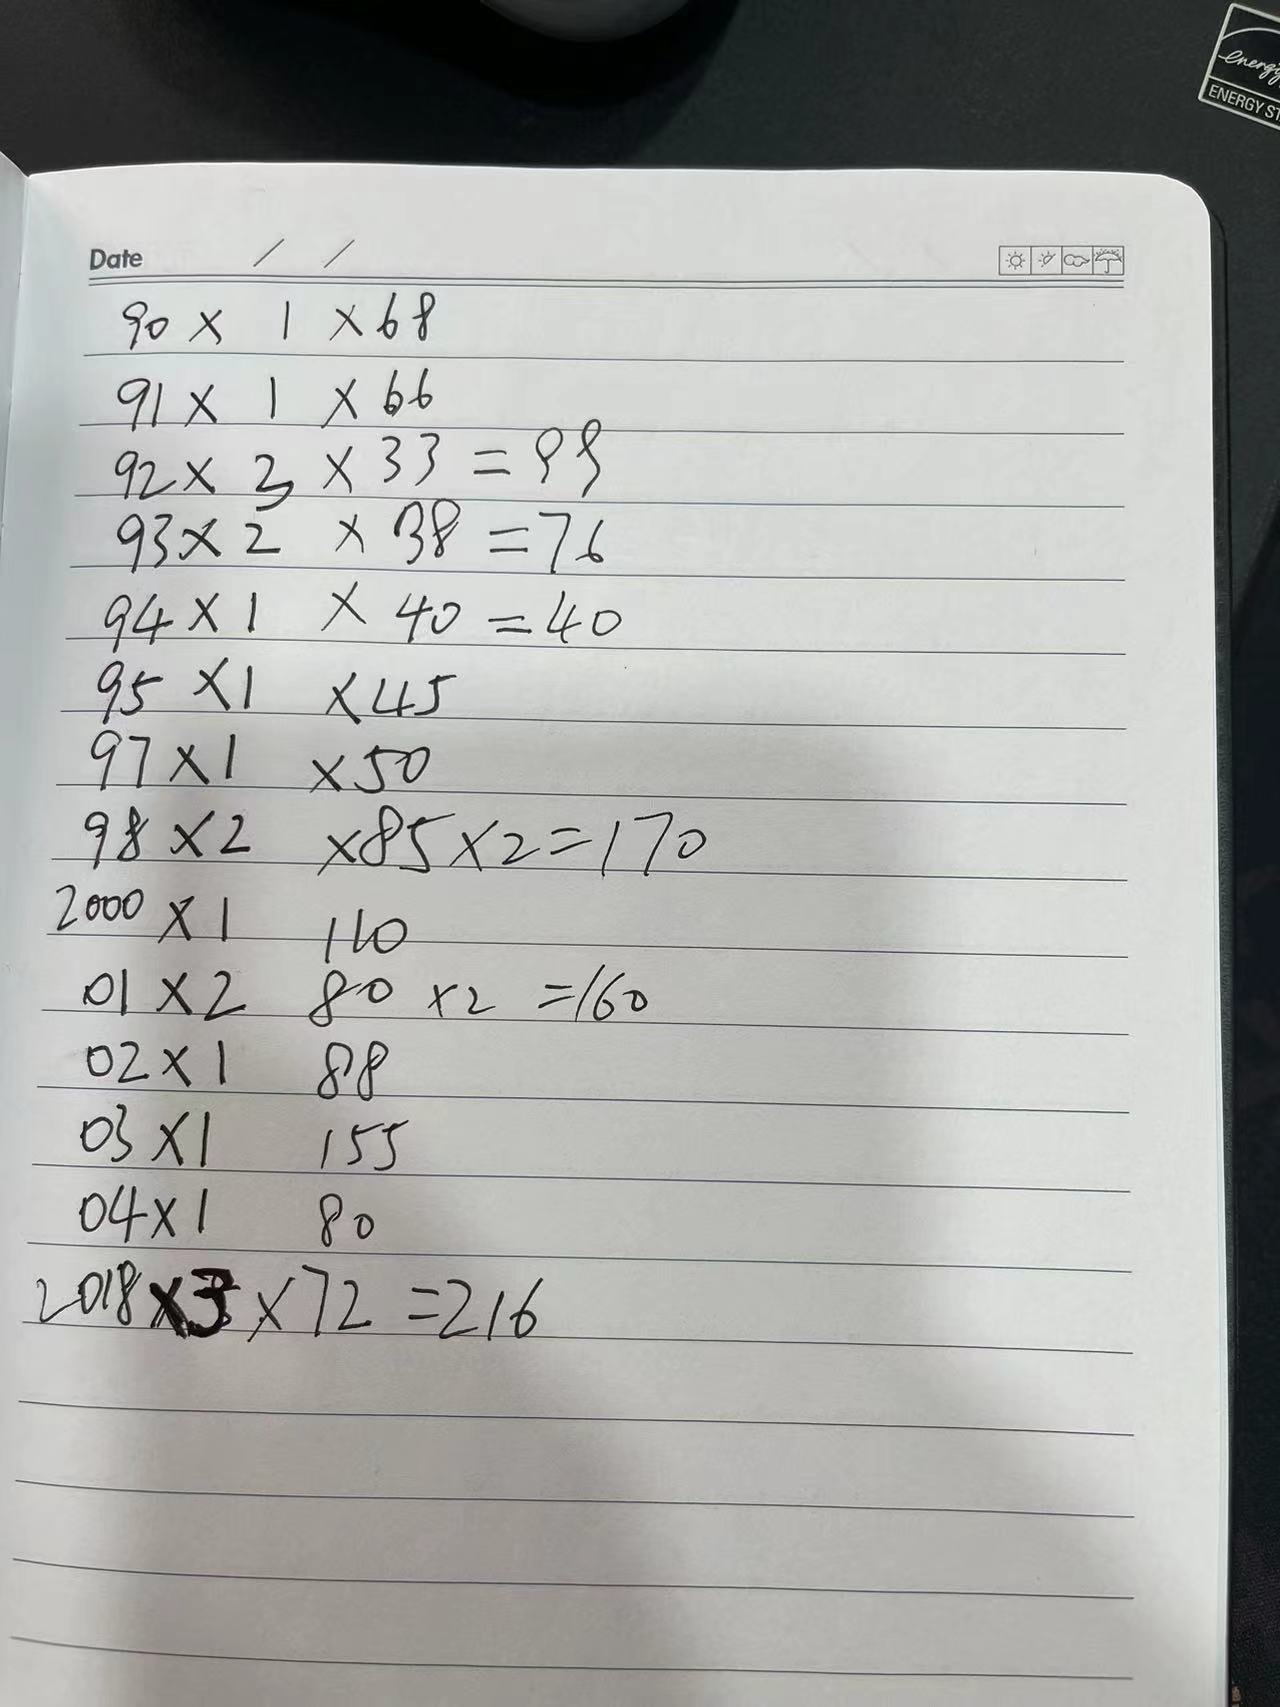 energy
ENERGY ST
Date / /
90 × 1 × 68
91 × 1 × 66
92 × 3 × 33 = 99
93 × 2 × 38 = 76
94 × 1 × 40 = 40
95 × 1 × 45
97 × 1 × 50
98 × 2 × 85 × 2 = 170
2000 × 1 110
01 × 2 80 × 2 = 160
02 × 1 88
03 × 1 155
04 × 1 80
2018 × 3 × 72 = 216